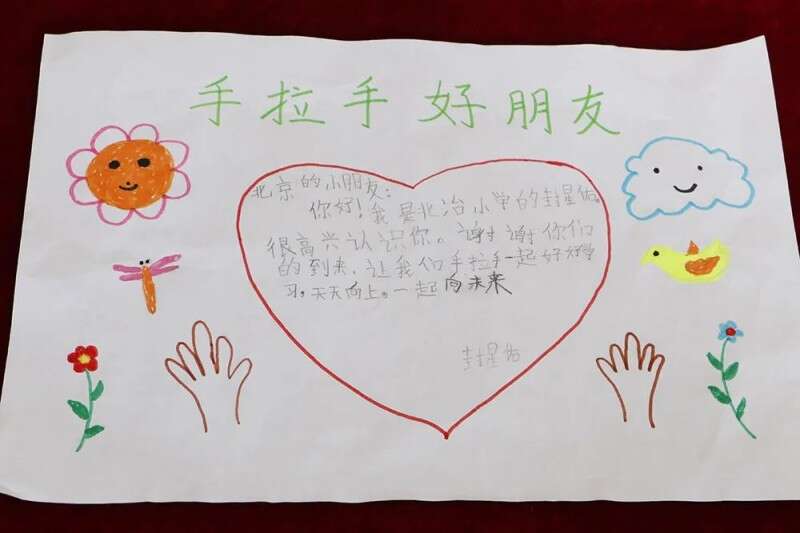 手拉手好朋友
北京的小朋友：
你好！我是北冶小学的封星佑。
很高兴认识你。谢谢你们
的到来，让我们手拉手一起好好学
习，天天向上。一起向未来
封星佑